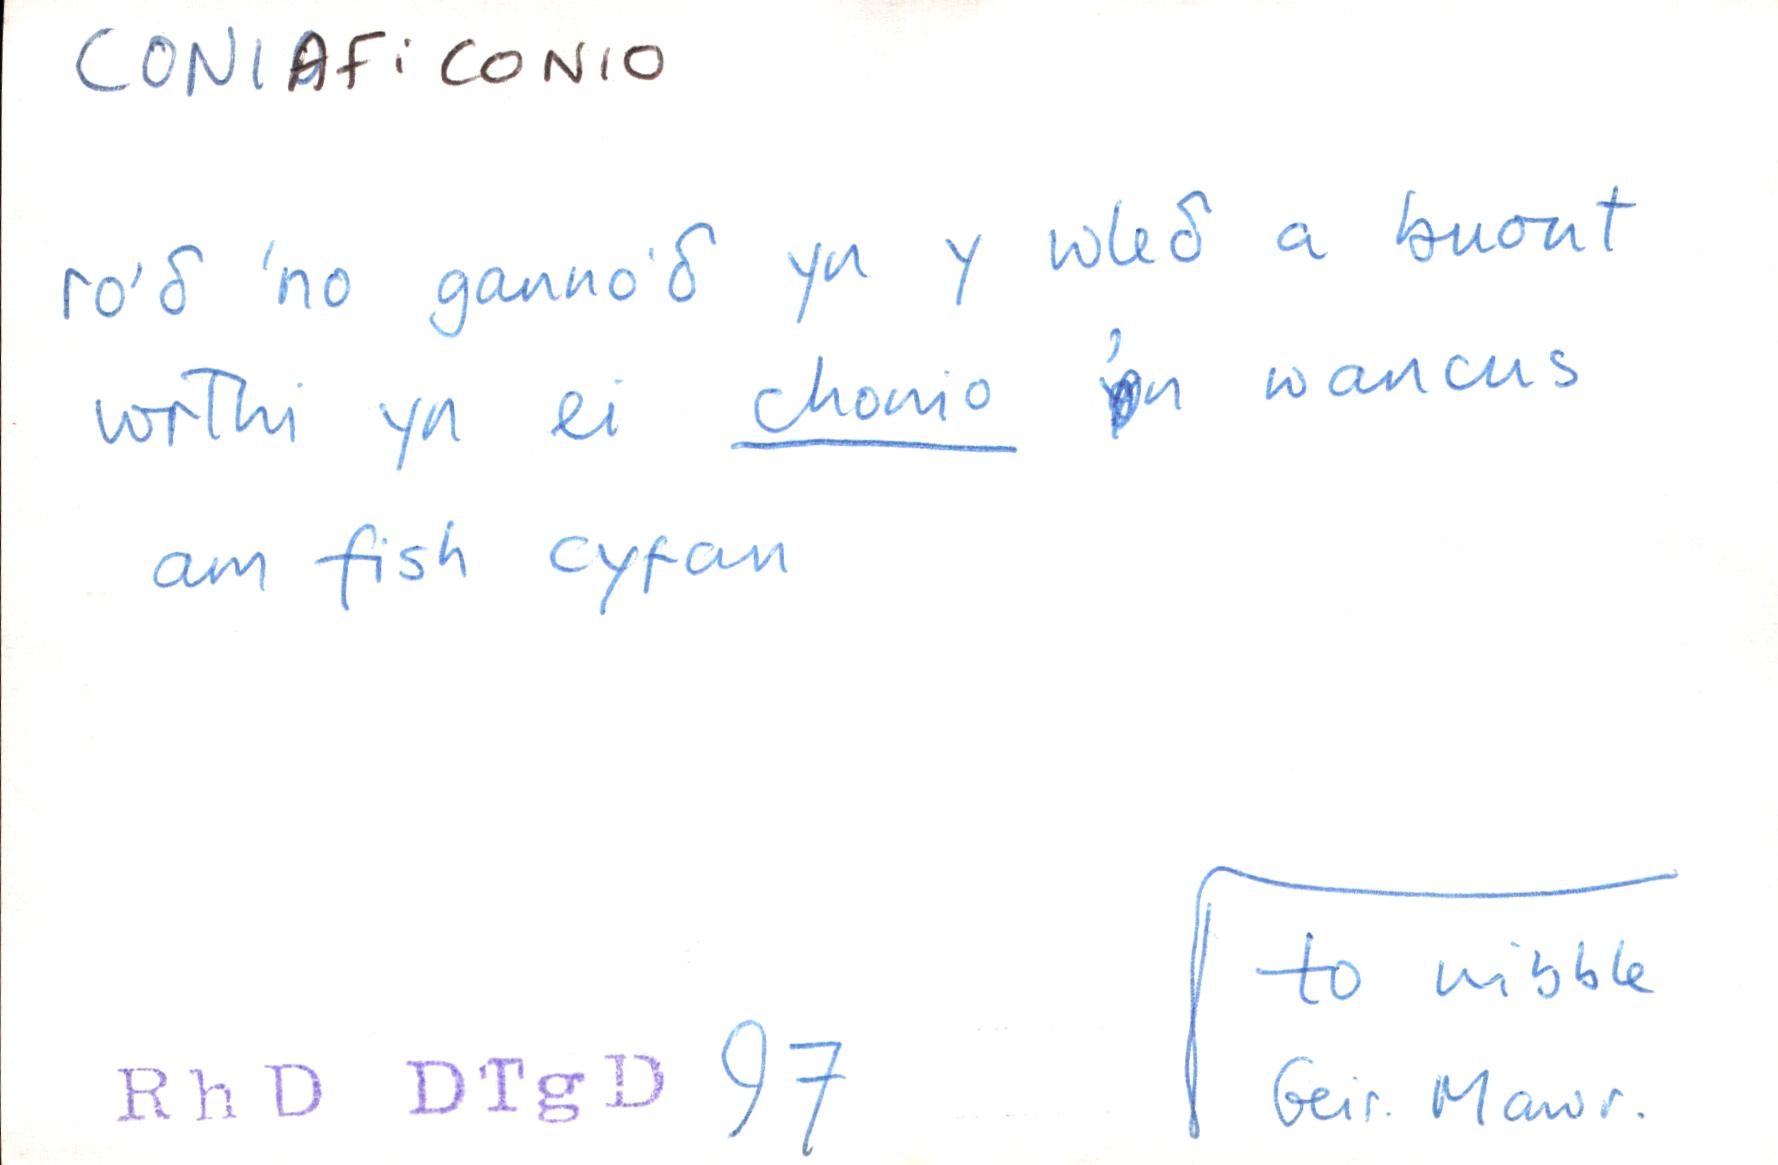 CONIAF: CONIO
ro'δ 'no ganno'δ yn y wleδ a buont
wrthi yn ei chonio 'n wancus
am fish cyfan
to nibble
Geir. Mawr.
RhD DTgD 97